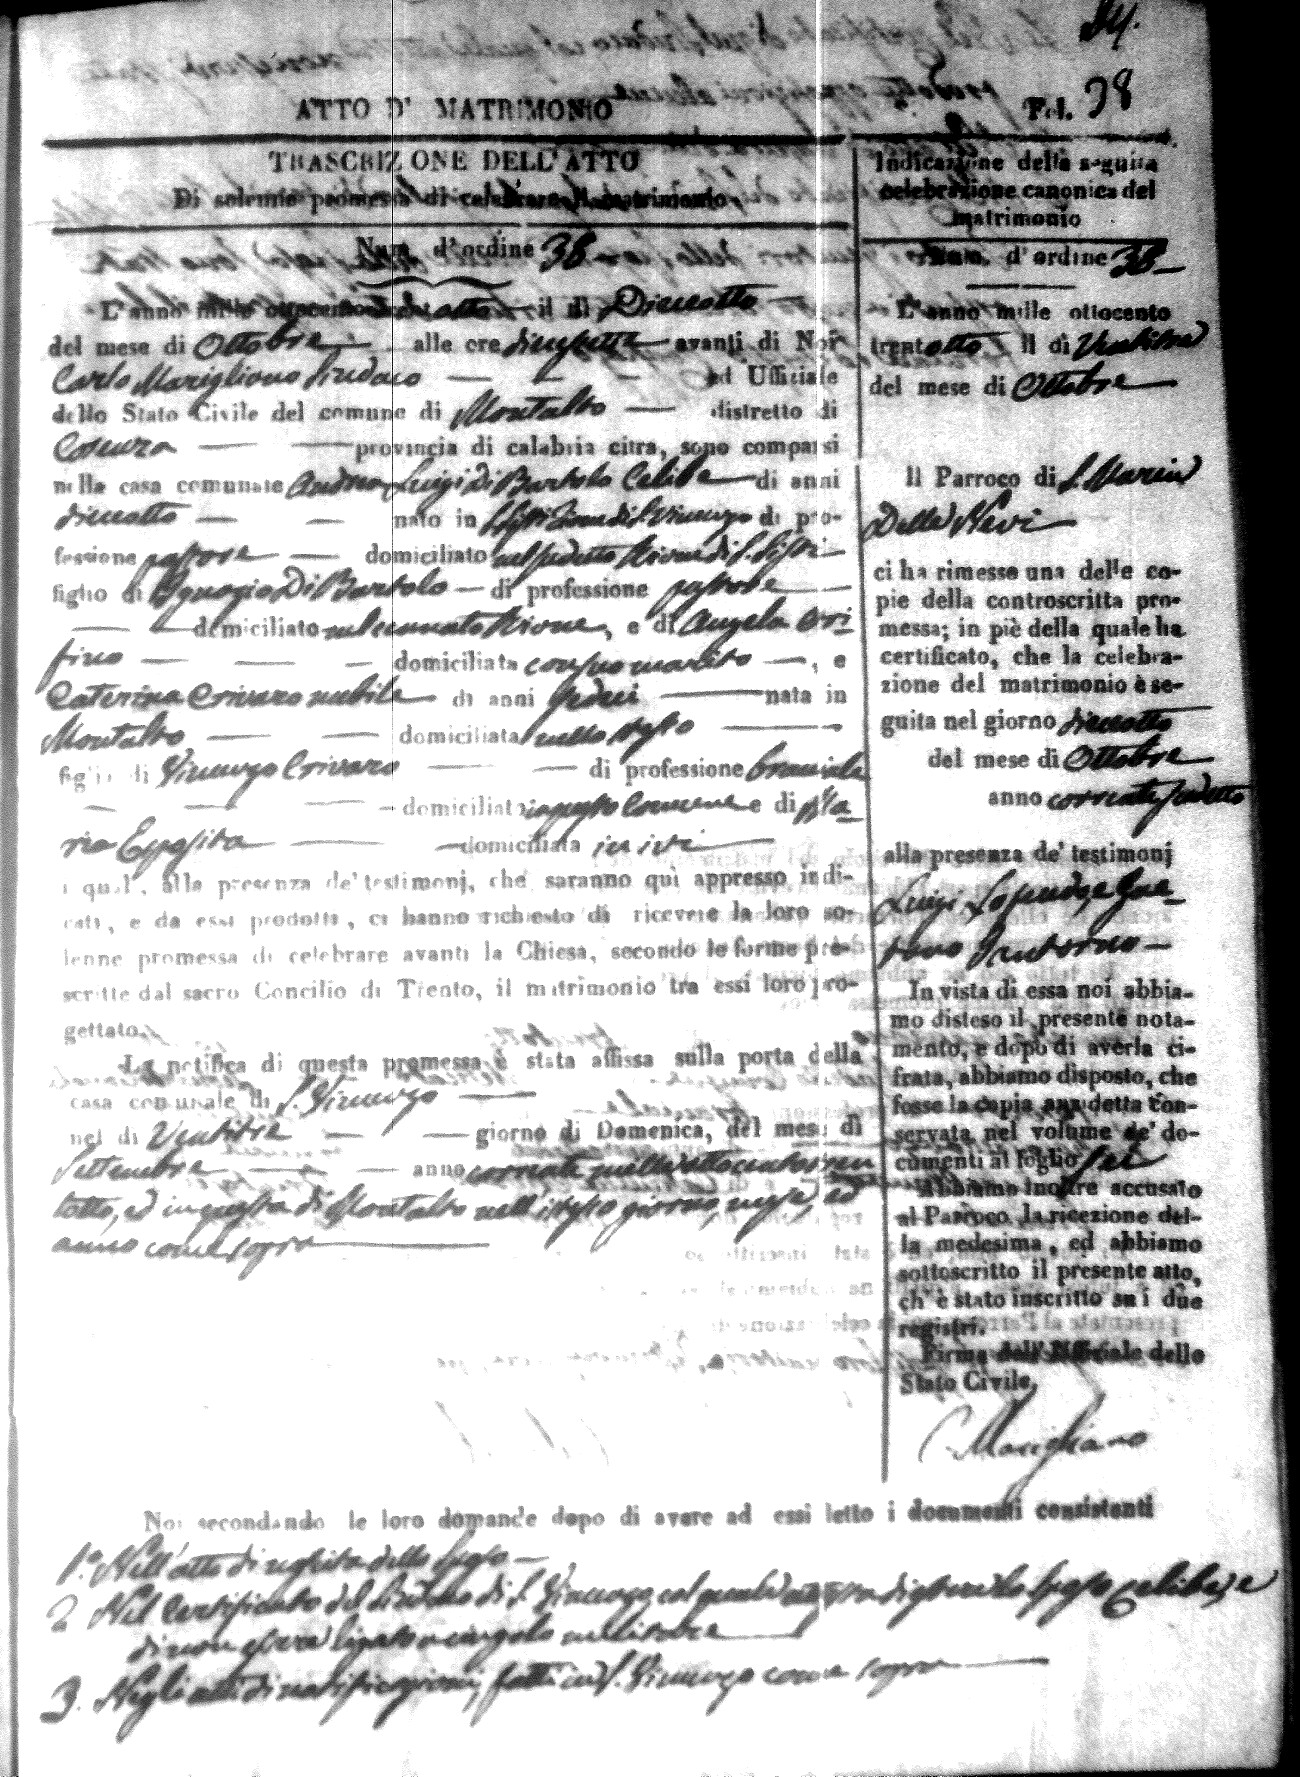 84.
ATTO D' MATRIMONIO
Fol. 38
TRASCRIZIONE DELL'ATTO
Di solenne promessa di celebrare il matrimonio
Num. d'ordine 38
L'anno mille ottocento trentotto il dì Dieciotto
del mese di Ottobre alle ore diecisette avanti di Noi
Carlo Marigliano Sindaco ed Uffiziale
dello Stato Civile del comune di Montalto distretto di
Cosenza provincia di calabria citra, sono comparsi
nella casa comunale Andrea Luigi Di Bartolo Celibe di anni
dieciotto nato in S. Sisti Rione di S. Vincenzo di pro-
fessione pastore domiciliato nel sudetto Rione di S. Sisti
figlio di Ignazio Di Bartolo di professione pastore
domiciliato nel cennato Rione, e di Angela Ori
fino domiciliata con suo marito, e
Caterina Crivaro nubile di anni sedeci nata in
Montalto domiciliata nello stesso
figlia di Vincenzo Crivaro di professione bracciale
domiciliato in questo Comune e di Ma-
ria Esposito domiciliata ivi
i quali, alla presenza de' testimonj, che saranno quì appresso indi-
cati, e da essi prodotti, ci hanno richiesto di ricevere la loro so-
lenne promessa di celebrare avanti la Chiesa, secondo le forme pre-
scritte dal sacro Concilio di Trento, il matrimonio tra essi loro pro-
gettato.
La notifica di questa promessa è stata affissa sulla porta della
casa comunale di S. Vincenzo
nel dì Ventitre giorno di Domenica, del mese di
Settembre anno corrente mille ottocento tren
totto, ed in questa di Montalto nell'istesso giorno, mese, ed
anno come sopra
Indicazione della seguita
celebrazione canonica del
matrimonio
Num. d'ordine 38
L'anno mille ottocento
trentotto il dì Ventitre
del mese di Ottobre
Il Parroco di S. Maria
Della Nevi
ci ha rimesso una delle co-
pie della controscritta pro-
messa; in piè della quale ha
certificato, che la celebra-
zione del matrimonio è se-
guita nel giorno dieciotto
del mese di Ottobre
anno corrente sudetto
alla presenza de' testimonj
Luigi e Gae-
tano
In vista di essa noi abbia-
mo disteso il presente nota-
mento, e dopo di averla ci-
frata, abbiamo disposto, che
fosse la copia anzidetta con-
servata nel volume de' do-
cumenti al foglio sei
Abbiamo inoltre accusato
al Parroco la ricezione del-
la medesima, ed abbiamo
sottoscritto il presente atto,
ch' è stato inscritto su i due
registri.
Firma dell'Uffiziale dello
Stato Civile,
C. Marigliano
Noi secondando le loro domande dopo di avere ad essi letto i documenti consistenti
1.° Nell'atto di nascita dello sposo
2 Nel Certificato del Sindaco di S. Vincenzo col quale di essere lo sposo Celibe, e
di non essere ligato a cingolo militare
3. Negli atti di notificazioni, fatti in S. Vincenzo come sopra